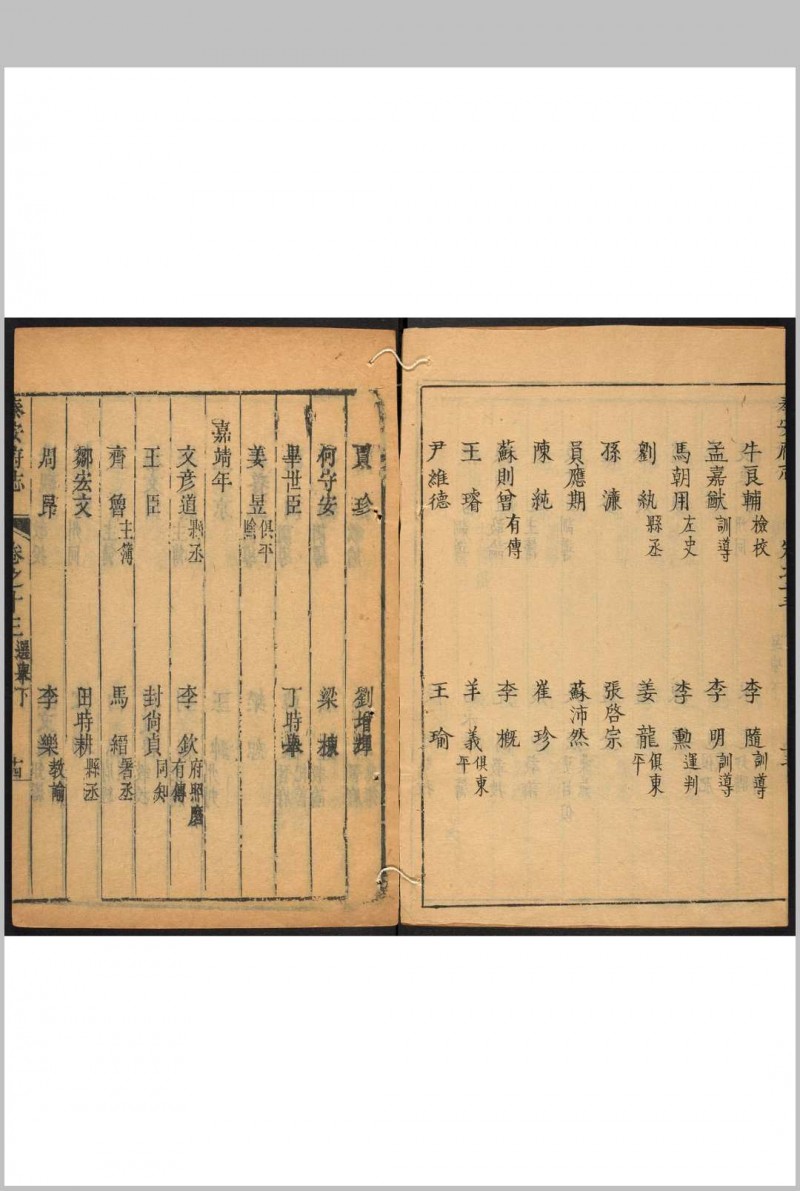 牛良輔 檢校 李隨 訓導
孟嘉猷 訓導 李明 訓導
馬朝用 左史 李勲 運判
劉紈 縣丞 姜龍 俱東平
孫濂 張啓宗
員應期 蘇沛然
陳純 崔珍
蘇則曾 有傳 李概
王璿 羊義 俱東平
尹維德 王瑜
賈珍 劉增輝
何守安 梁棟
畢世臣 丁時舉
姜昱 俱平陰
嘉靖年
文彦道 縣丞 李欽 府照磨 有傳
王臣 封尚貞 同知
齊魯 主簿 馬縉 署丞
鄒宏文 田時耕 縣丞
周昂 李樂 教諭
泰安府志 卷之十三 選舉下 十四